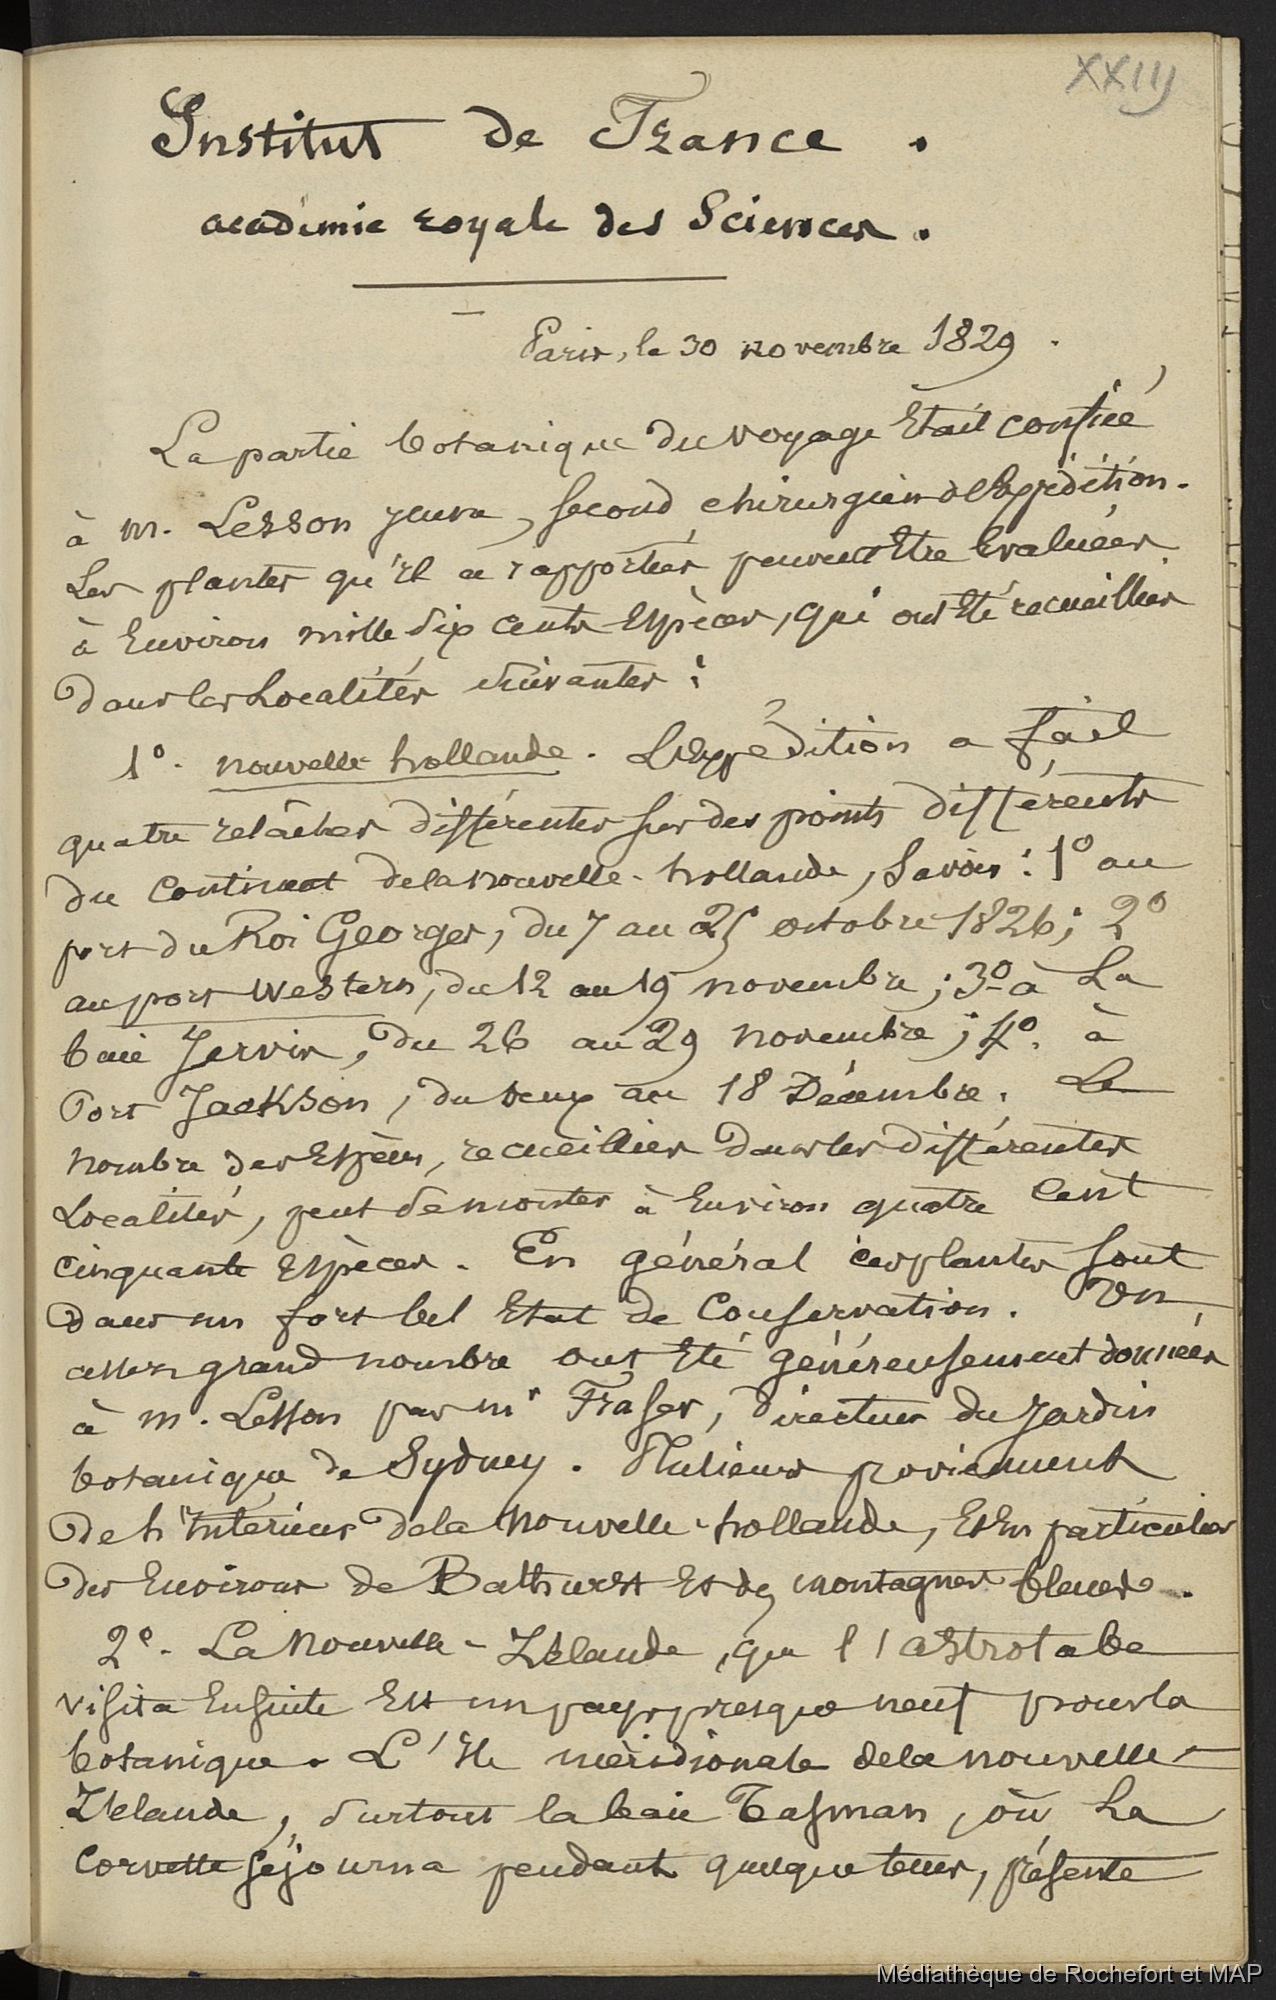 XXIIJ
Institut de France.
academie royale des Sciences.
Paris, le 30 novembre 1829.
La partie botanique du voyage était confiée
à m. Lesson jeune, second chirurgien de l'expédition.
Les plantes qu'il a rapportées peuvent être évaluées
à environ mille dix cents espèces, qui ont été recueillies
dans les localités suivantes :
1º. nouvelle hollande. L'expédition a fait
quatre relâches différentes sur des points différents
du continent de la nouvelle-hollande, savoir : 1º au
port du Roi Georges, du 7 au 25 octobre 1826; 2º
au port Western, du 12 au 19 novembre; 3º à La
baie Jervis, du 26 au 29 novembre; 4º. à
Port Jackson, du deux au 18 Décembre. Le
nombre des espèces, recueillies dans les différentes
Localités, peut se monter à environ quatre cent
cinquante espèces. En général ces plantes sont
dans un fort bel état de conservation. Un
assez grand nombre ont été généreusement données
à m. Lesson par mr Fraser, directeur du Jardin
botanique de Sydney. Plusieurs proviennent
de l'intérieur de la Nouvelle-hollande, et en particulier
des environs de Bathurst et des montagnes bleues.
2º. La Nouvelle-Zélande, que l'astrolabe
visita ensuite est un pays presque neuf pour la
botanique. L'île méridionale de la nouvelle-
Zélande, surtout la baie Tasman, où La
corvette séjourna pendant quelque tems, présente
Médiathèque de Rochefort et MAP